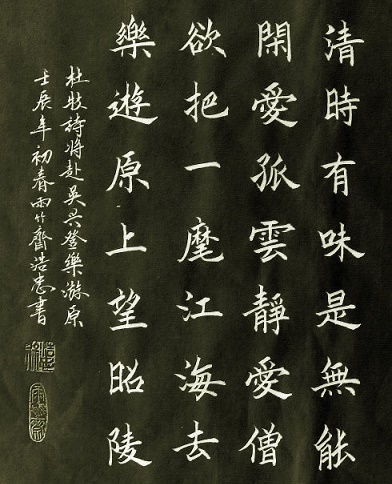 清時有味是無能
閑愛孤雲靜愛僧
欲把一麾江海去
樂遊原上望昭陵
杜牧詩將赴吳兴登樂游原
壬辰年初春雨竹齋浩忠書